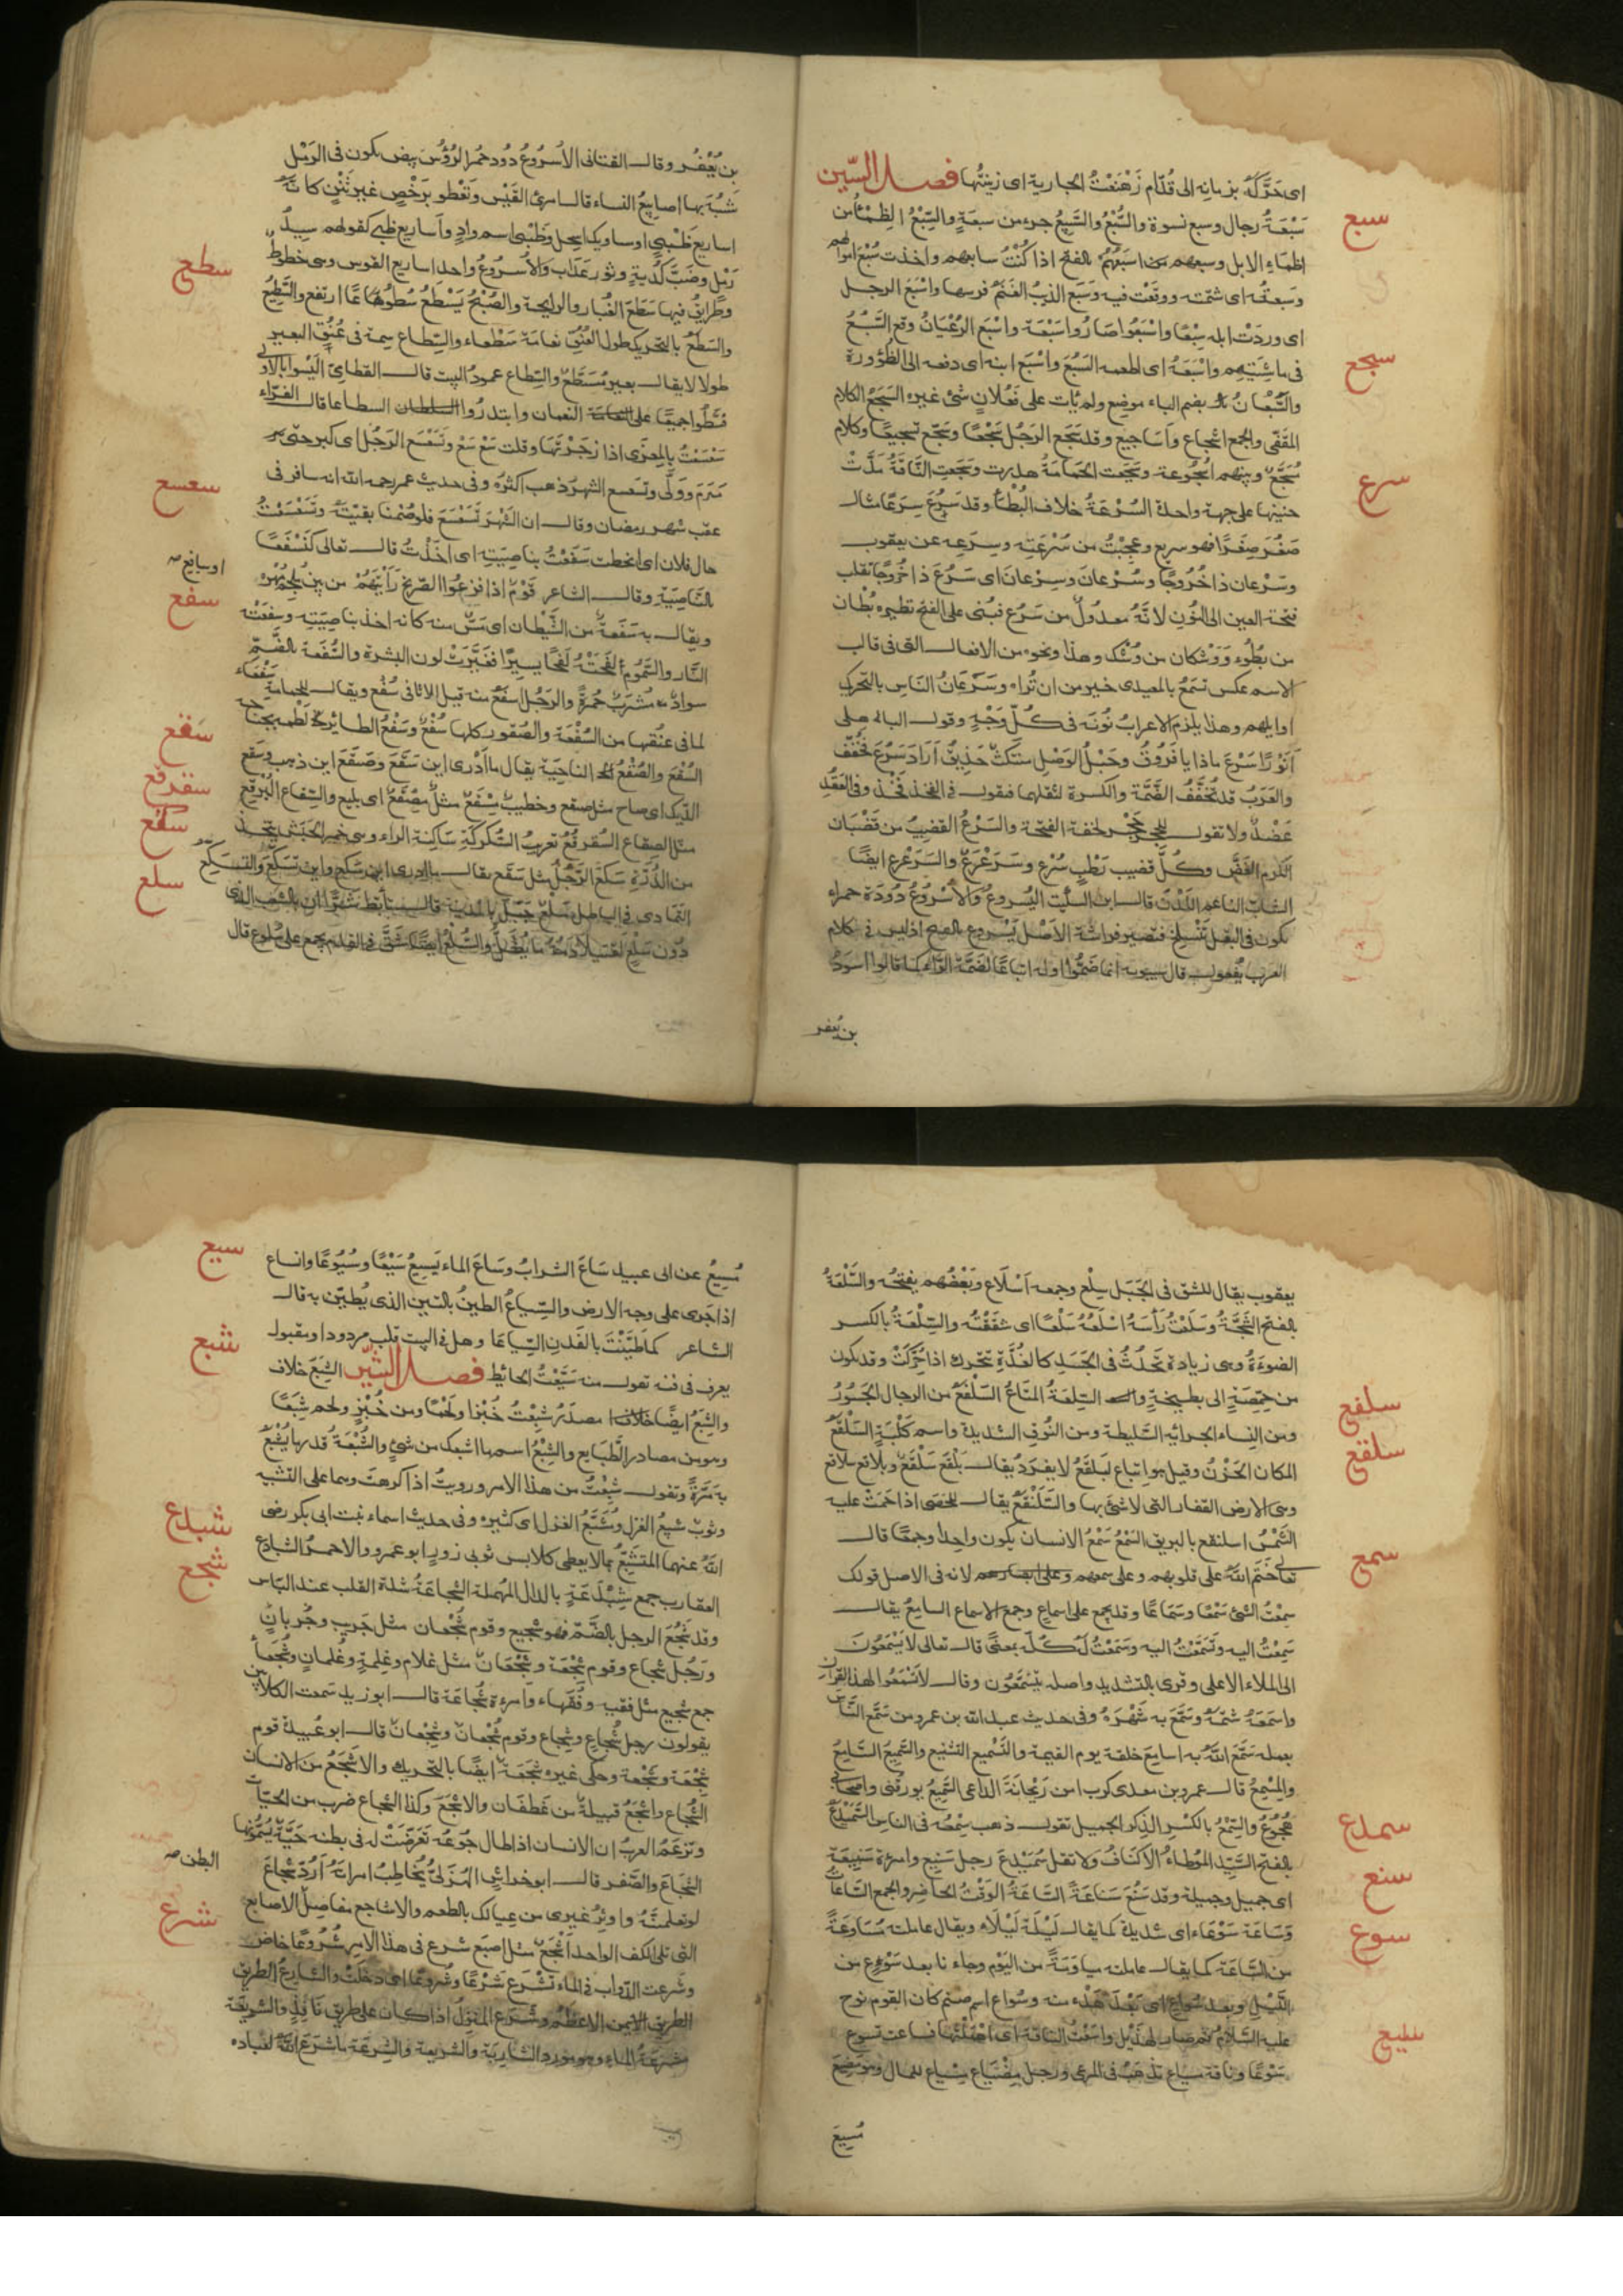 اى حَرَّكَهُ بزمانه الى قُدّام زَهْنَعْتُ الجارية اى زينتُها فصل السّين
سبع
سَبْعَةُ رجال وسبع نسوة والسُّبْعُ والسَّبِيعُ جزء من سبعةٍ والسِّبْعُ الظِمْءُ من
اظماءِ الابل وسبعهم اسْبَعُهُم بالفتح اذا كُنْتُ سابعهم واخذت سُبْعَ اموالهم
وسَبعتُه اى شتمته ووقَعْت فيه وسَبَع الذئبُ الغَنَمَ فرسها واسْبَعَ الرجل
اى وردَتْ ابله سِبْعًا واسْبَعُوا صَارُوا سَبْعَة واسْبَع الرُعْيَانُ وقع السَّبُعُ
سجع
فى ماشيَتِهِم واسْبَعَهُ اى اطعمه السَبُعَ واسْبَعَ ابنه اى دفعه الى الظُؤُورة
والسَّبُعَانُ بضم الباء موضع ولم يأت على فَعُلانٍ شئ غيره السَجْعُ الكلام
المقَفّى والجمع اسْجاع واَسَاجيع وقد سَجَع الرَجُل سَجْعًا وسَجّع تسجيعًا وكلام
مُسَجَّعٌ وبينهم اُسْجُوعة وسَجَعت الحَمَامَةُ هدرت وسَجَعَتِ النَّاقَةُ مَدَّتْ
سرع
حنينها على جهة واحدة السُرْعَةُ خلاف البُطْءِ وقد سَرُعَ سِرَعًا مثال
صَغُرَ صِغَرًا فهو سريع وعَجِبْتُ من سُرْعَتِه وسِرَعِه عن يعقوب
وسَرْعان ذا خُرُوجًا وسُرْعانَ وسِرْعانَ اى سَرُعَ ذا خُرُوجًا نقلت
فتحة العين الى النُون لانّهُ معدُولٌ من سَرُع فبُنى على الفتح نظيره بُطْان
من بطُوء وَوَشْكان من وَشُك وهذا ونحوه من الافعال التى فى قالب
الاسم عكس تسمَعُ بالمعيدى خير من ان تراه وسَرَعَانُ النَاسِ بالتحريك
اوايلهم وهذا يلزم الاعرابُ نُونَه فى كُلّ وَجْهٍ وقول الباهلى
اَنَوْرًا سَرْعَ ماذا يا فَرُوقُ وحَبْلُ الوَصْلِ منتكثٌ حَذِيقُ اَرَادَ سَرُعَ فخُفّف
والعَرَبُ قد تُخَفِّفُ الضَّمَّة والكسرة لثقلهما فتقول فى الفخذ فَخْذ وفى العَضُدِ
عَضْدٌ ولا تقول للحَجَر حَجْر لخفة الفتحة والسَرْعُ القضيبُ من قضْبَان
الكَرْم الغَضّ وكُلّ قضيب رَطْبٍ سَرْع وسَرَعْرَعٌ والسَرَعْرع ايضًا
الشابّ الناعم اللّدْنُ قال ابن السِكّيت اليُسروعُ والاُسْرُوعُ دُودَة حمراء
تكون فى البقل تنْسَلِخ فتصير فراشة الاصْل يَسْروع بالفتح اذ ليس فى كلام
العرب يُفعول قال سيبويه انما ضَمُّوا اوله اتباعًا لضمّة الرّاء كما قالوا اسوَدُ
بن يُعفر
بن يُعْفُر وقال القنانى الاُسْرُوعُ دُود حُمْر الرُؤُس بيض تكون فى الرَمْل
شُبّه بها اصابِعُ النساء قال امرئ القَيْس وتَعْطو برَخْصٍ غيرِ شَثْنٍ كانّهُ
اساريعُ ظَبْيٍ او مساويك اسحل وظَبْى اسم وادٍ واَساريع ظبى كقولهم سِيدُ
سطح
رَمْل وضَبّ كُدْيةٍ وثور عَدَاب والاُسْرُوعُ واحد اساريع القوس وهى خطوط
وطَرايقُ فيها سَطَعَ الغُبار والرايحة والصُبْحُ يَسْطَعُ سُطُوعًا اذا ارتفع والسَطِيعُ
والسَطَعُ بالتحريك طول العُنُق نعَامَة سَطْعاء والسِّطاع سِمة فى عُنُقِ البعير
طولا لا يقال بعير مُسَطَّعٌ والسِطاع عمودُ البيت قال القطامِىّ اَلَيْسُوا بالاولى
قسَطُوا جميعًا على النعمان وابتدرُوا السطاعا قال الفرّاء
سَعْسَعْتُ بالمِعزَى اذا زجَرْتَهَا وقلت سَعْ سَعْ وتَسَعْسَعَ الرَجُل اى كبر حتى
سعسع
هَرِمَ ووَلّى وتسعسع الشهرُ ذهب اكثرُه وفى حديث عمر رحمه الله انه سافر فى
عقب شهر رمضان وقال ان الشَهْرَ تَسَعْسَعَ فلو صُمْنا بقيَّتَهُ وتَسَعْسَعَتْ
او سافع صح
حال فلان اى انحطت سَفَعْتُ بناصِيَتِه اى اَخَذْتُ قال تعالى لَنَسْفَعًا
سفع
بالنّاصِيَةِ وقال الشاعر قَوْمٌ اذا فزعُوا الصّريخَ رأيتَهُمْ من بين مُلْجِمِ مُهْرِه
ويقال به سَفْعَةٌ من الشَّيْطان اى مَسٌّ منه كانه اخذ بناصِيَتِه وسفعَتْه
النّار والسَّمُوم لَفَحَتْهُ لَفْحًا يسيرًا فغَيَّرتْ لون البشرة والسُفْعَة بالضَّمّ
سوادٌ مُشرَبٌ حُمرةً والرَجُل اسفَعُ منه قيل للاثافى سُفْع ويقال للحَمامة سَفْعاء
لما فى عنُقها من السُفْعَة والصُقور كلها سُفْعٌ وسَفْعُ الطائر لَطمه بجناحيه
سقع
السُقْعُ والصُقْعُ الناحِيَة يقال ما اَدْرى اين سَقَعَ وصَقَعَ اين ذهب وسَقَع
سقرقع
الدّيك اى صاح مثل صقع وخطيبٌ مِسْقَعٌ مثل مِصْقَعٌ اى بليغ والسِقاع البُرْقع
سكع
مثل الصِقاع السُقرقُع تعريب السُّكُركَةِ سَاكنة الراء وهى خمر الحَبَش يتخذ
من الذُرةِ سَكَعَ الرَّجُل مثل سَقَع يقال ما ادرى اين سَكع واين تَسَكّعَ والتسكّع
سلع
التَمادى فى الباطل سَلْعٌ جَبَلٌ بالمدينة قال تأبّط شَرًّا ان بالشعب الذى
دُونَ سَلْعٍ لقتيلًا دَمُهُ ما يُطَلُّ والسَّلْعُ ايضًا الشَقّ فى القدم يجمع على سُلوع قال
يعقوب يقال للشق فى الجَبَل سِلْع وجمعه اَسْلاع وبَعْضُهم يفتحُه والسَّلْعَةُ
بالفتح الشَجَّةُ وسَلَعْتُ رأسَهُ اسْلَعُهُ سَلْعًا اى شقَقْتُه والسِّلْعَةُ بالكسر
الضوءَةُ وهى زيادة تَحْدُثُ فى الجَسَدِ كالغُدَّةِ تتحرك اذا حُرّكتْ وقد تكون
من حِمّصَةٍ الى بطيخةٍ والسِلعَةُ المتاعُ السَلْفَعُ من الرجال الجَسُورُ
سلفع
ومن النِساء الجرائيه السَّليطة ومن النُوق الشديدة واسم كَلْبَةٍ السَلْقَعُ
سلقع
المكان الحَزْنُ وقيل هو اتباع لبَلقَعُ لا يفرَدُ يقال بَلْقَع سَلْقَع وبلاقع سلاقع
وهى الارض القفار التى لا شئ بها والسَّلَنْقَعُ يقال للحَصَى اذا حَمِيَتْ عليه
الشَمْسُ اسلنقع بالبريق السَمْعُ سَمْعُ الانسان يكون واحدًا وجمعًا قال
سمع
تعالى خَتَمَ اللهُ على قلوبهم وعلى سمعهم لانه فى الاصل قولك
سمِعْتُ الشئ سَمْعًا وسَمَاعًا وقد يجمع على اسماعٍ وجمع الاسماع اسامِعُ يقال
سَمِعْتُ اليه وتَسَمَّعْتُ اليه وسَمِعْتُ لَهُ كُلٌّ بمعنًى قال تعالى لا يَسْمَعُونَ
الى الملاء الاعلى وقرى بالتشديد واصله يتسْمَّعُون وقال لا تَسْمَعُوا لهذا القرآن
واَسْمَعَهُ شَتَمَهُ وسَمَّعَ به شَهَّرهُ وفى حديث عبد الله بن عمرو من سَمَّع النَّاسَ
بعمله سَمَّعَ اللهُ به اسامِعَ خلقه يوم القيمة والتَسْميع التشنيع والسَميعُ السَّامِعُ
والمِسْمِعُ قال عمرو بن معدى كرب امن رَيْحانَةَ الداعى السَّمِيعُ يورّقنى واصحابى
سمدع
هُجُوعُ والسِمْعُ بالكَسْر الذِكر الجميل تقول ذهب سِمْعُه فى الناس السَّمَيْدَعُ
بالفتح السَيِّد المُوطَّاءُ الاَكنَافُ ولا تقل سُمَيْدِعَ رجل سَنيع وامرءة سَنِيعَة
سنع
اى جميل وجميلة وقد سَنُعَ سَنَاعَةً السّاعَةُ الوَقْتُ الحَاضِر والجمع السَّاعَاتُ
سوع
وسَاعَة سَوْعَاء اى شديدة كما يقال لَيْلَة لَيْلَاء ويقال عاملته مُسَاوَعَةً
من السَّاعَة كما يقال عاملته مياوَمَةً من اليَوْم وجاءنا بعد سَوْعٍ من
اللَيْلِ وبعد سُواع اى بَعْدَ هَدْءٍ منه وسُواع اسم صنم كان لقوم نوح
سيع
عليه السَّلامُ ثم صار لهذَيْل واسَعْتُ الناقة اى اهمَلْتها فساعت تسوع
سَوْعًا وناقة مسياع تذهَبُ فى المرعى ورجل مِضْيَاع مِسْياع للمال وهو مُضيع
مُسيعٌ
سيع
مُسيعٌ عن ابى عبيد سَاعَ الشرابُ وسَاعَ الماء يَسِيعُ سَيْعًا وسُيُوعًا وانساع
اذا جَرى على وجه الارض والسِّيَاعُ الطينُ بالتبن الذى يُطيّن به قال
الشاعر كما طَيَّنْتَ بالفَدَنِ السِّياعَا وهل فى البيت قلب مردودا ومقبول
شبع
يعرف فى فنه تقول منه سَيَّعْتُ الحائط فصل الشين الشِبَعُ خلاف
والشِبَعُ ايضًا مصدَرُ شَبِعْتُ خُبْزًا ولَحْمًا ومن خُبْزٍ ولحم شِبَعًا
وهو من مصادر الطَّبَايع والشِبْعُ اسم ما اشبعك من شئٍ والشُبْعَةُ قدر ما يُشْبَعُ
به مَرَّةً وتقول شَبِعْتُ من هذا الامر ورويتُ اذا كرهته وهما على التشبيه
وثوبٌ شبيعُ الغزل ومُشَبَّعُ الغزل اى كثيره وفى حديث اسماء بنت ابى بكر رضى
شبدع
اللهُ عنهما المُتشَبِّعُ بما لا يعطى كلابس ثوبى زورٍ ابو عمرو والاحمرُ الشبادِعُ
شجع
العقارب جمع شِبْدَعَةٍ بالدال المهملة الشجَاعَةُ شدة القلب عند البَأس
وقد شَجُعَ الرجل بالضَّم فهو شجيع وقوم شُجْعان مثل جَريب وجُربانٍ
ورَجُل شُجاع وقوم شِجْعَة وشِجْعَانٌ مثل غلام وغِلمةٍ وغُلمانٍ وشُجَعَاءُ
جمع شجيع مثل فقيه وفُقَهاء وامرءة شُجَاعَة قال ابو زيد سَمعت الكلابيين
يقولون رجل شُجاعٍ وشِجاع وقوم شُجْعانٌ وشِجْعانٌ قال ابو عُبيدة قوم
شِجْعَة وشُجْعة وحكى غيره شَجَعَةٌ ايضًا بالتحريك والاَشْجَعُ من الانسان
الشُجاع واشْجَعُ قبيلةٌ من غَطفَان والاشْجَعُ وكذا الشُجاع ضرب من الحيّات
وتزعَمُ العربُ ان الانسان اذا طال جُوعُه تَعَرّضَتْ له فى بطنه حَيَّةٌ يُسَمُّونها
البطن صح
الشُجَاعَ والصَّفَر قال ابو خراشٍ الهُذَلىّ يُخَاطِبُ امرأتَهُ اَرُدّ شُجاعَ
لو تعلمينَهُ واُوثِرُ غيرى من عِيالكِ بالطعم والاشاجع مفاصِلُ الاصابع
شرع
التى تلى الكف الواحد اشْجَعٌ مثل اصبَع شرع فى هذا الامر شُرُوعًا خاض
وشرعت الدّواب فى الماء تَشْرَع شَرْعًا وشُروعًا اى دخلَتْ والشارعُ الطريق
الطريق الايمن الاعظمُ وشَرَع المنزِلُ اذا كان على طريقٍ نَافِذٍ والشَريعَة
مَشرَعةُ الماء وهو مورد الشّاربة والشريعة والشِرعَة ما شَرَعَ اللهُ لعباده